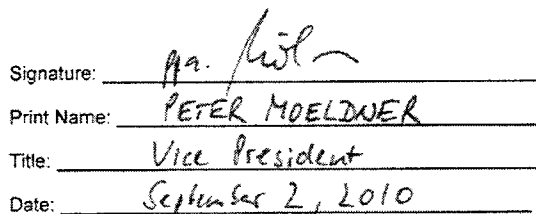 Signature: ppa.
Print Name: PETER MOELDNER
Title: Vice President
Date: September 2, 2010